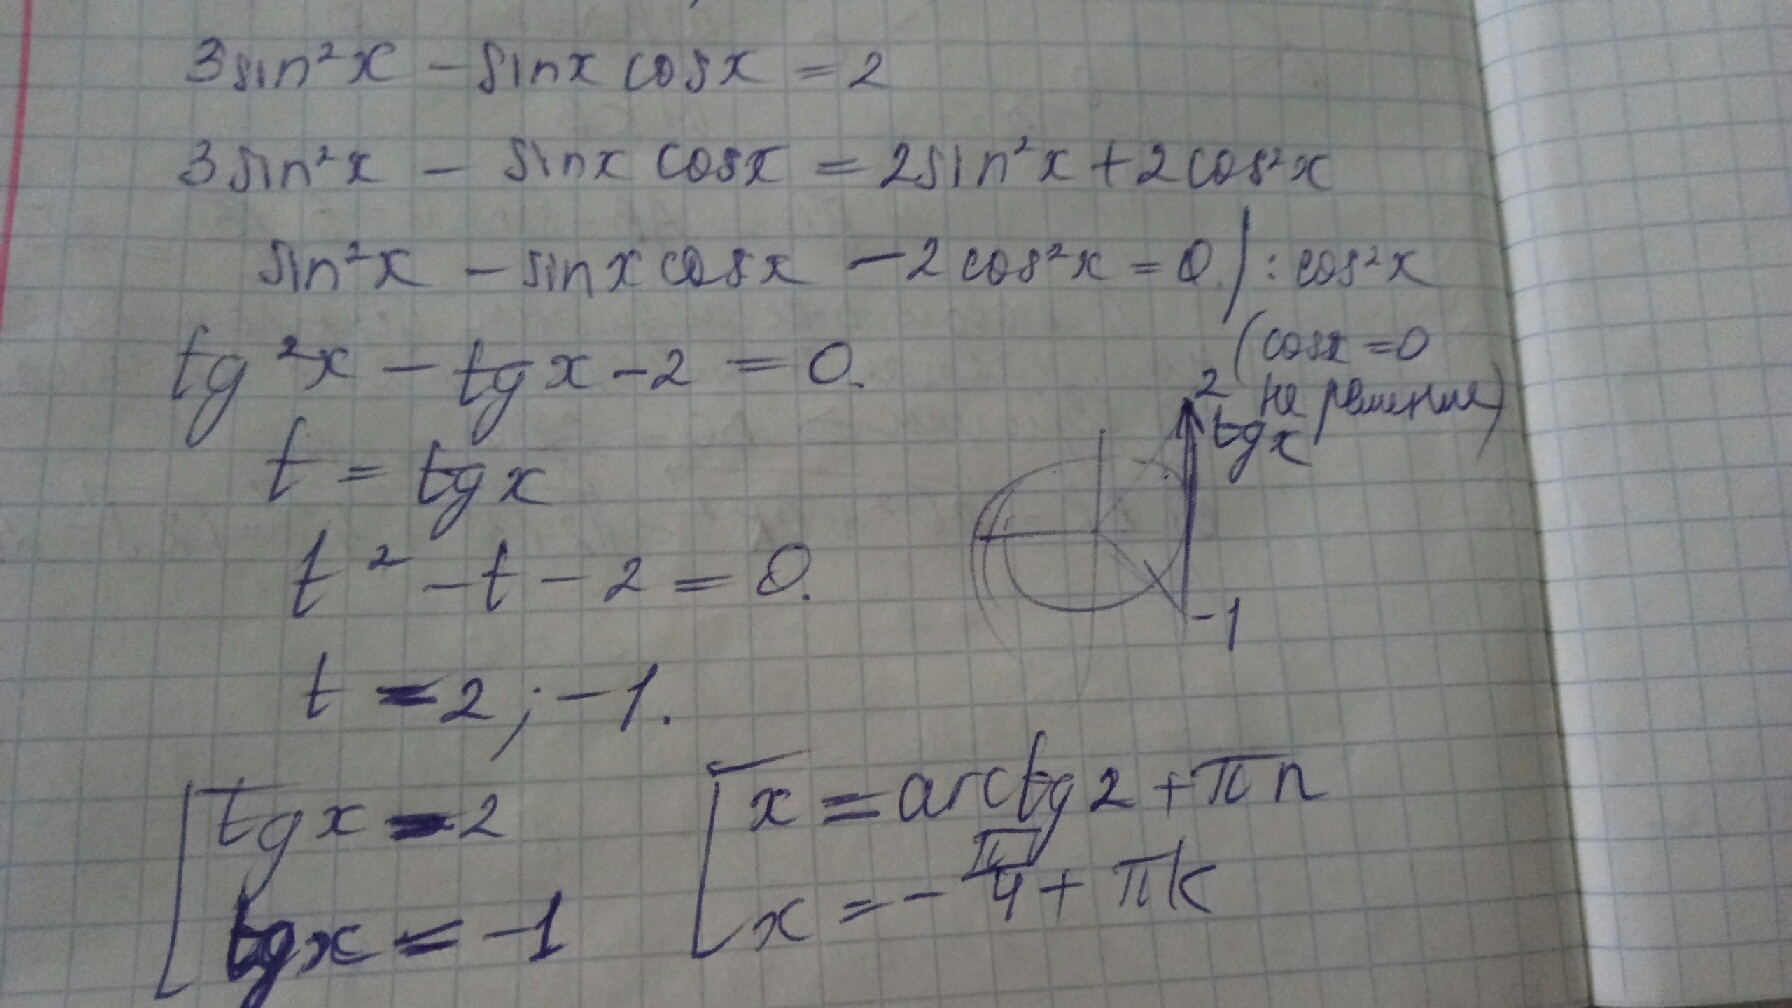 3sin²x - sinx cosx = 2
3sin²x - sinx cosx = 2sin²x + 2cos²x
sin²x - sinx cosx - 2cos²x = 0. | : cos²x
(cosx = 0
не решение)
tg²x - tgx - 2 = 0.
2
tgx
t = tgx
t² - t - 2 = 0.
-1
t = 2; -1.
[ tgx = 2
tgx = -1
[ x = arctg2 + πn
x = - π/4 + πk